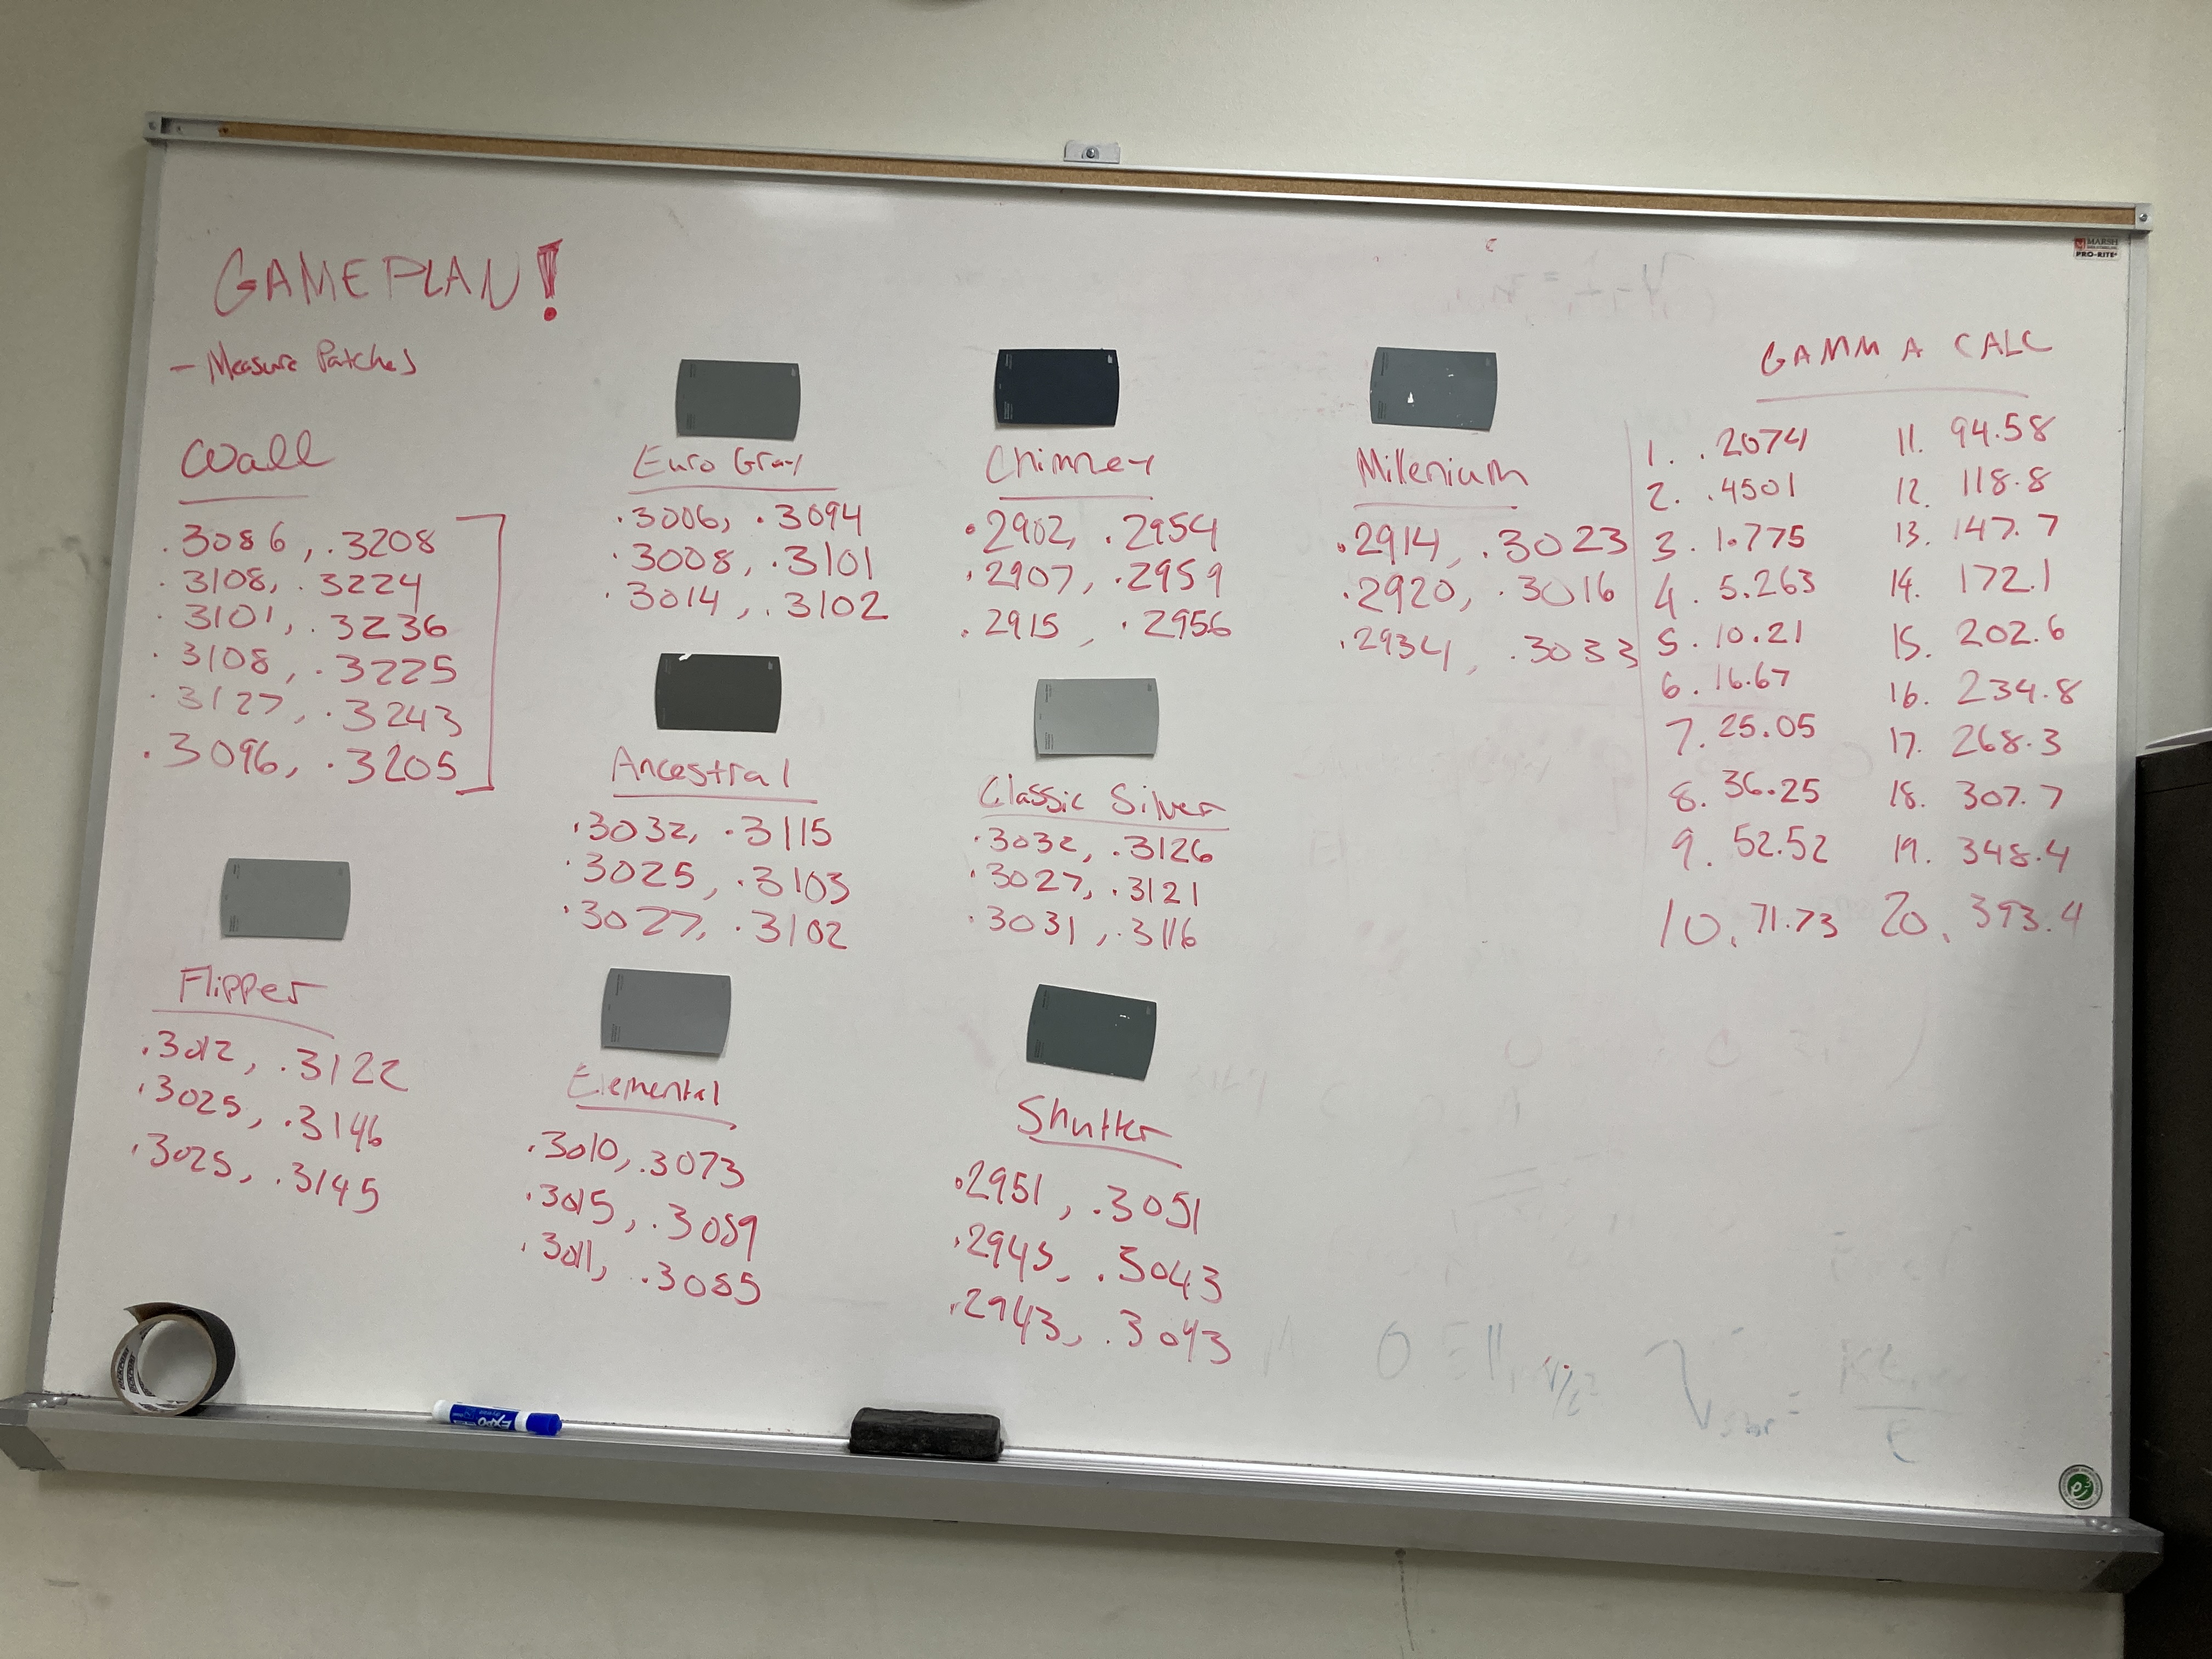 GAMEPLAN!
- Measure Patches
Wall
.3086, .3208
.3108, .3224
.3101, .3236
.3108, .3225
.3127, .3243
.3096, .3205
Flipper
.3012, .3122
.3025, .3146
.3025, .3145
Euro Gray
.3006, .3094
.3008, .3101
.3014, .3102
Ancestral
.3032, .3115
.3025, .3103
.3027, .3102
Elemental
.3010, .3073
.3015, .3089
.3011, .3085
Chimney
.2902, .2954
.2907, .2959
.2915, .2956
Classic Silver
.3032, .3126
.3027, .3121
.3031, .3116
Shutter
.2951, .3051
.2945, .3043
.2943, .3043
Millenium
.2914, .3023
.2920, .3016
.2934, .3033
GAMMA CALC
1. .2074
2. .4501
3. 1.775
4. 5.263
5. 10.21
6. 16.67
7. 25.05
8. 36.25
9. 52.52
10. 71.73
11. 94.58
12. 118.8
13. 147.7
14. 172.1
15. 202.6
16. 234.8
17. 268.3
18. 307.7
19. 348.4
20. 393.4
MARSH
PRO-RITE
EXPO